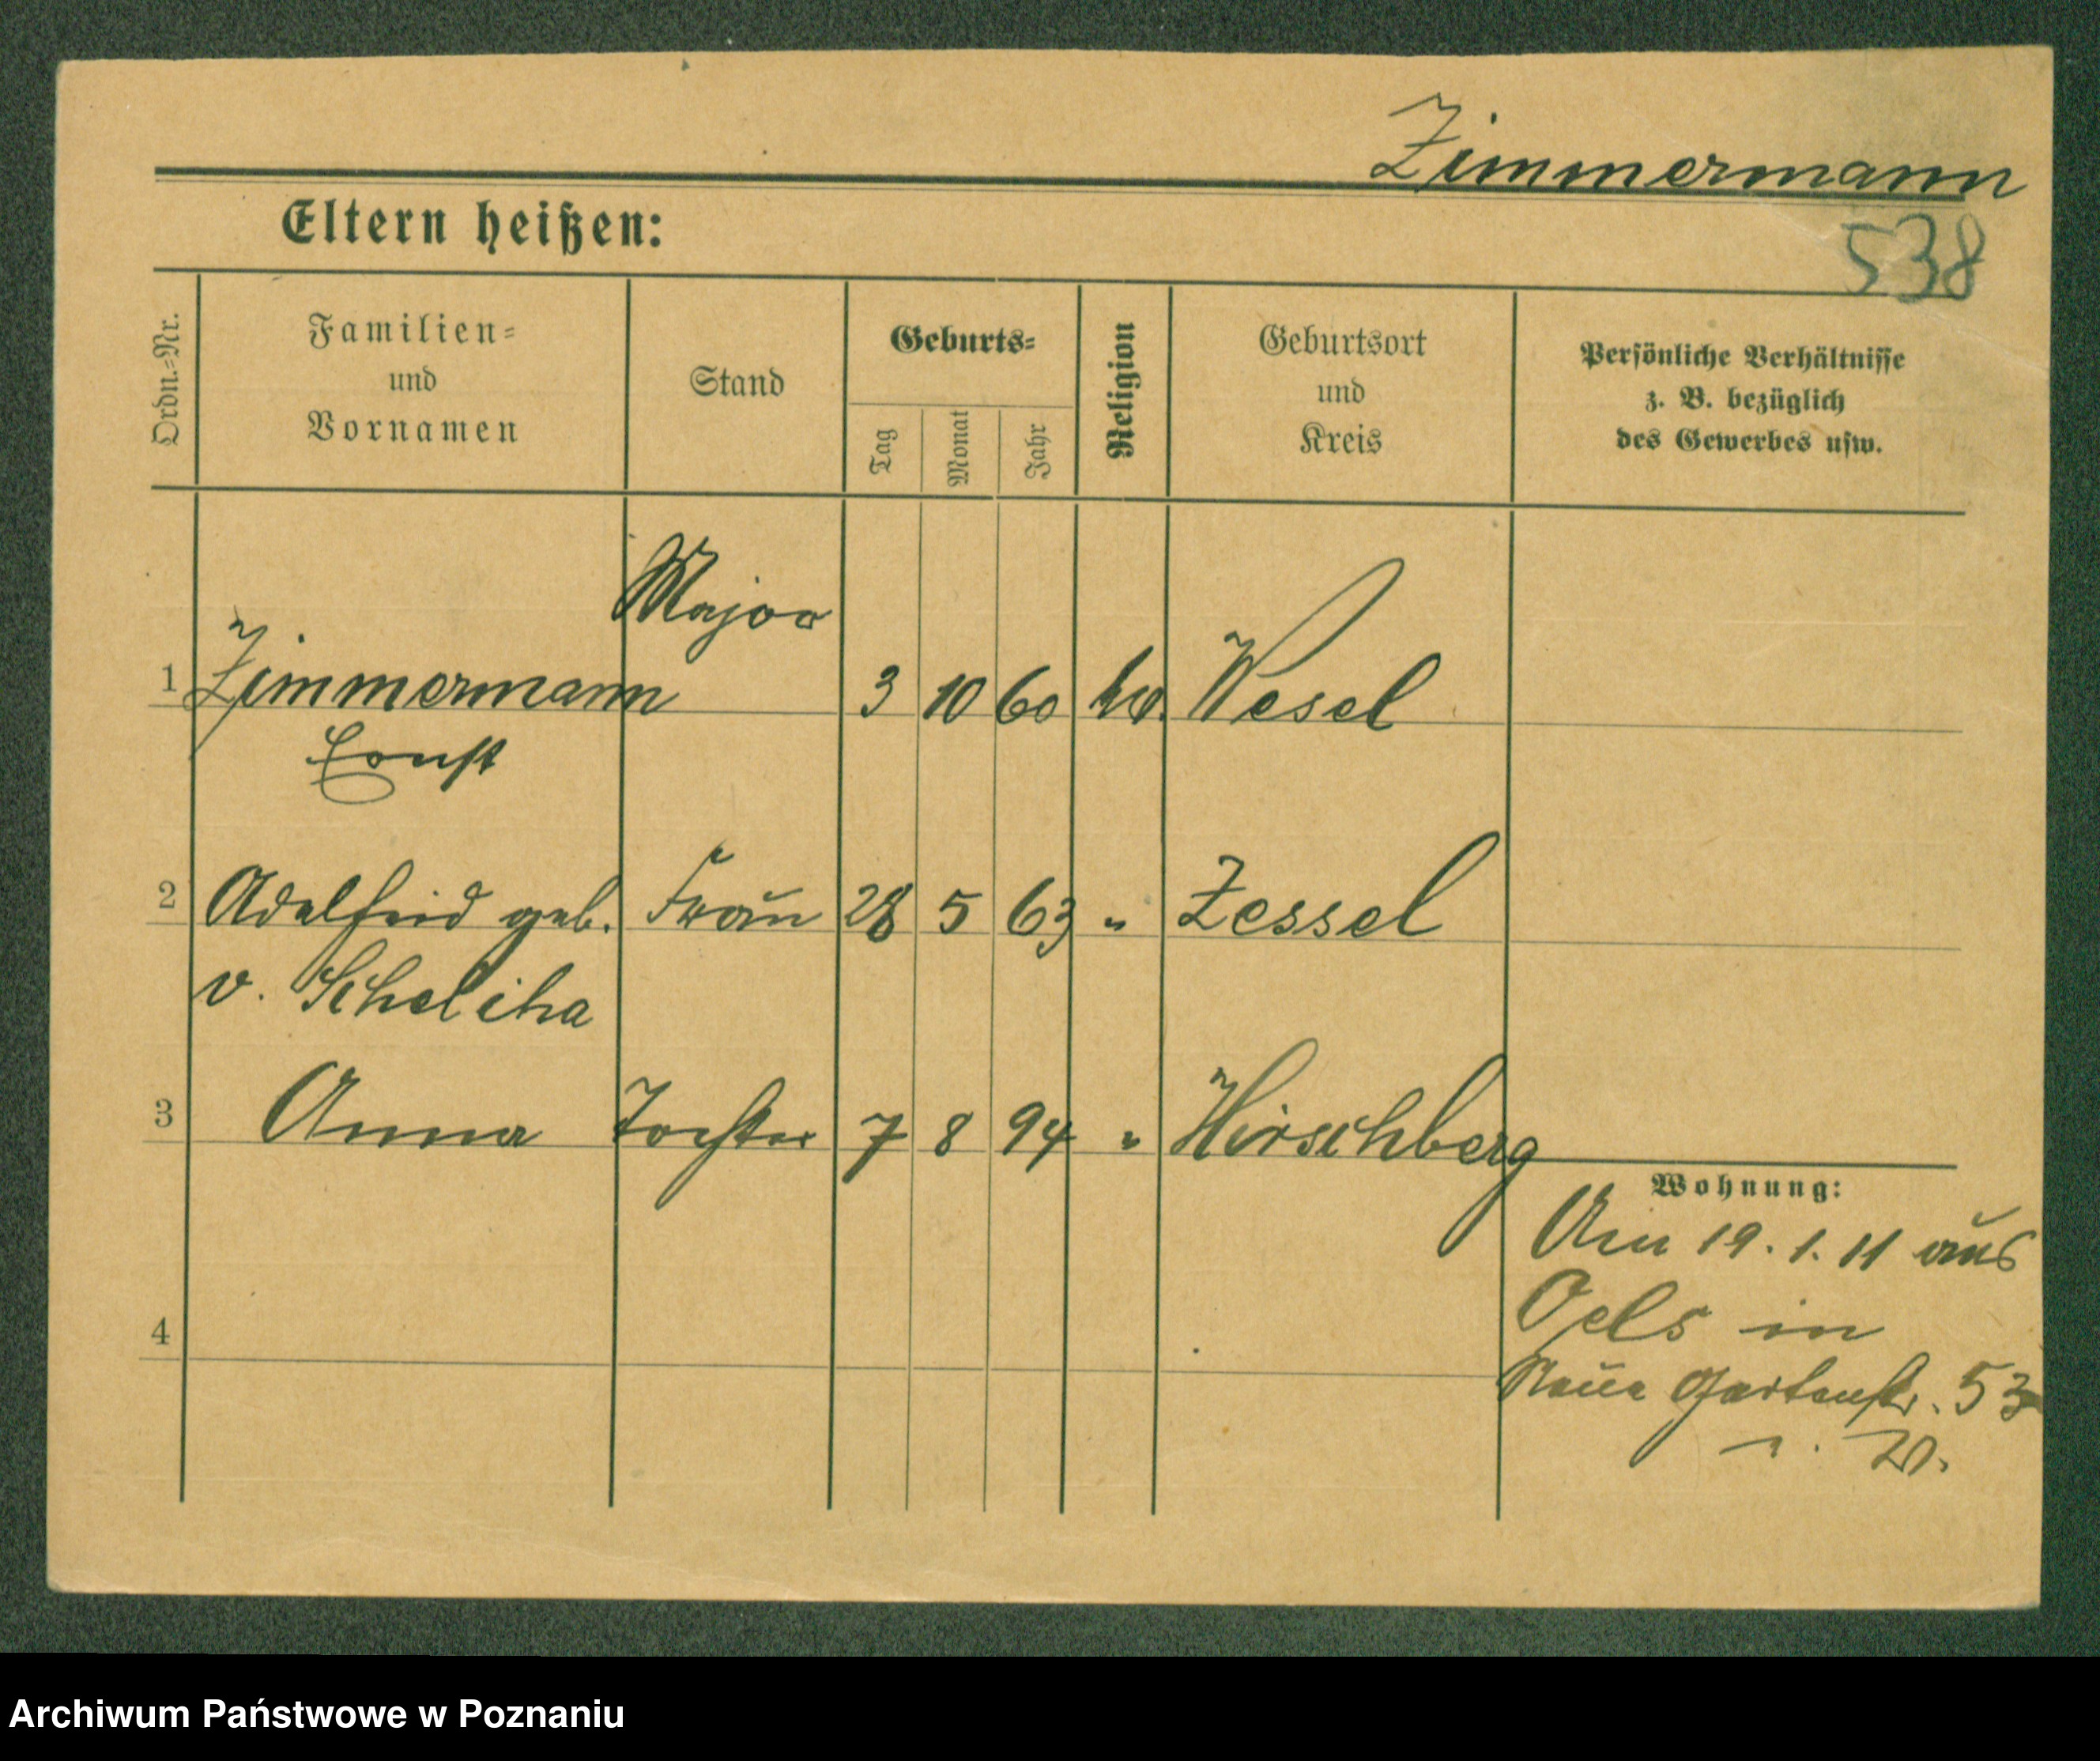 Zimmermann
538
Eltern heißen:
Ordn.=Nr.
Familien=
und
Vornamen
Stand
Geburts=
Tag
Monat
Jahr
Religion
Geburtsort
und
Kreis
Persönliche Verhältnisse
z. B. bezüglich
des Gewerbes usw.
Major
1 Zimmermann 3 10 60 Wesel
Ernst
2 Adelheid geb. Frau 28 5 63 " Zessel
v. Scheliha
3 Anna Tochter 7 8 94 " Hirschberg
Wohnung:
Am 19. 1. 11 aus
Oels in
4
Neue Gartenstr. 53
Archiwum Państwowe w Poznaniu